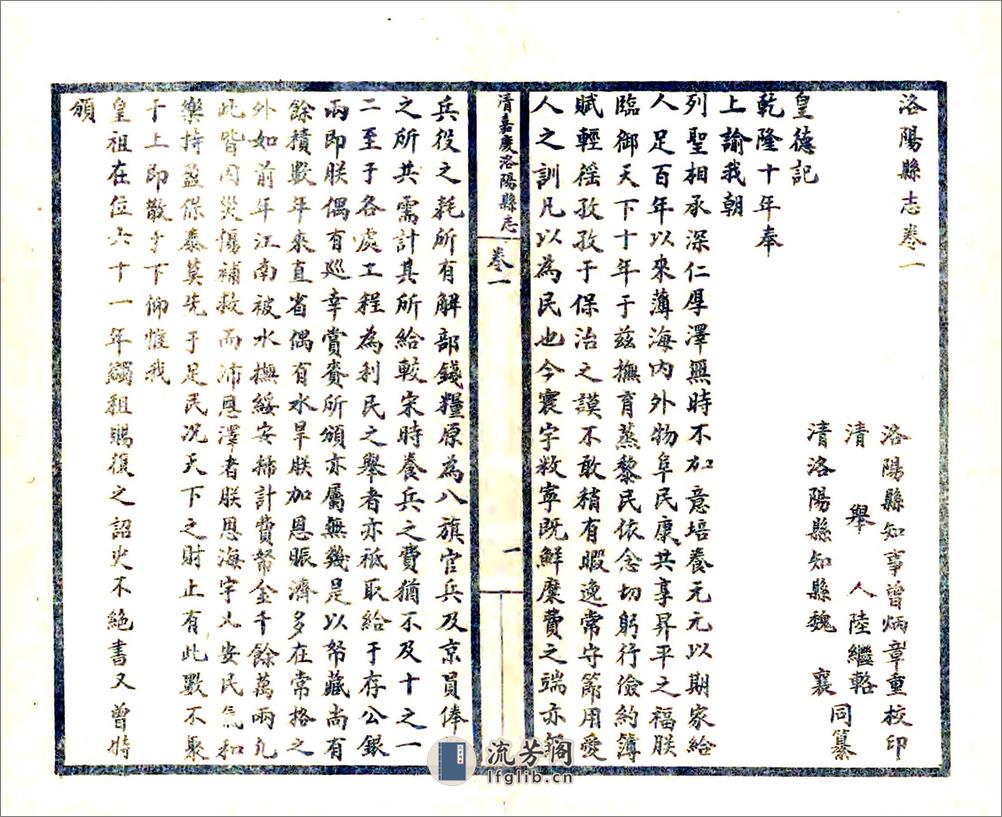 洛陽縣志卷一
洛陽縣知事曾炳章重校印
清舉人陸繼輅
清洛陽縣知縣魏襄
同纂
皇德記
乾隆十年奉
上諭我朝
列聖相承深仁厚澤無時不加意培養元元以期家給
人足百年以來薄海內外物阜民康共享昇平之福朕
臨御天下十年于茲撫育蒸黎民依念切躬行儉約薄
賦輕徭孜孜于保治之謨不敢稍有暇逸常守節用愛
人之訓凡以為民也今寰宇敉寧既鮮糜費之端亦
清嘉慶洛陽縣志
卷一
一
兵役之耗所有解部錢糧原為八旗官兵及京員俸
之所共需計其所給較宋時養兵之費猶不及十之一
二至于各處工程為利民之舉者亦祗取給于存公銀
兩即朕偶有巡幸賞賚所頒亦屬無幾是以帑藏尚有
餘積數年來直省偶有水旱朕加恩賑濟多在常格之
外如前年江南被水撫綏安插計費帑金千餘萬兩凡
此皆因災傷補救而沛恩澤者朕思海宇乂安民氣和
樂持盈保泰莫先于足民況天下之財止有此數不聚
于上即散于下仰惟我
皇祖在位六十一年蠲租賜復之詔史不絕書又曾特
頒
流芳阁
lfglib.cn